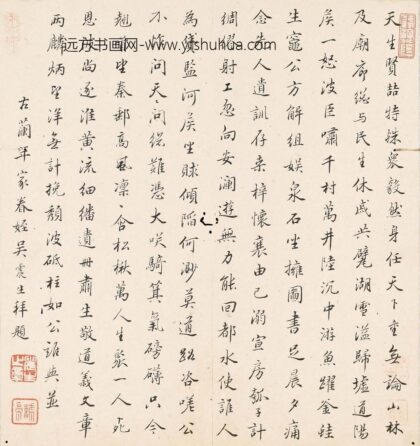 远方书画网-www.yfshuhua.com
天生賢喆特殊衆毅然身任天下重無論山林
及廟廊總与民生休戚共甓湖雪溢歸墟道陽
矦一怒波臣嘯千村萬井陸沉中游魚躍釜蛙
生竈公方解組娛泉石坐擁圖書足晨夕痛
念先人遺訓存桑梓懷襄由己溺宣房瓠子計
綢繆射工忽向安瀾遊無力能回都水使誰人
為監河矦坐賕傾陷何渺莫道路咨嗟公
不問天天问總難憑大咲騎箕氣磅礴只今
望秦郵高風凜含松楸萬人生聚一人死
恩波尚逐淮黃流細繙遺冊肅生敬道義文章
兩麟炳望洋無計挽頹波砥柱如公誰與並
古蘭年家眷姪吳震生拜題